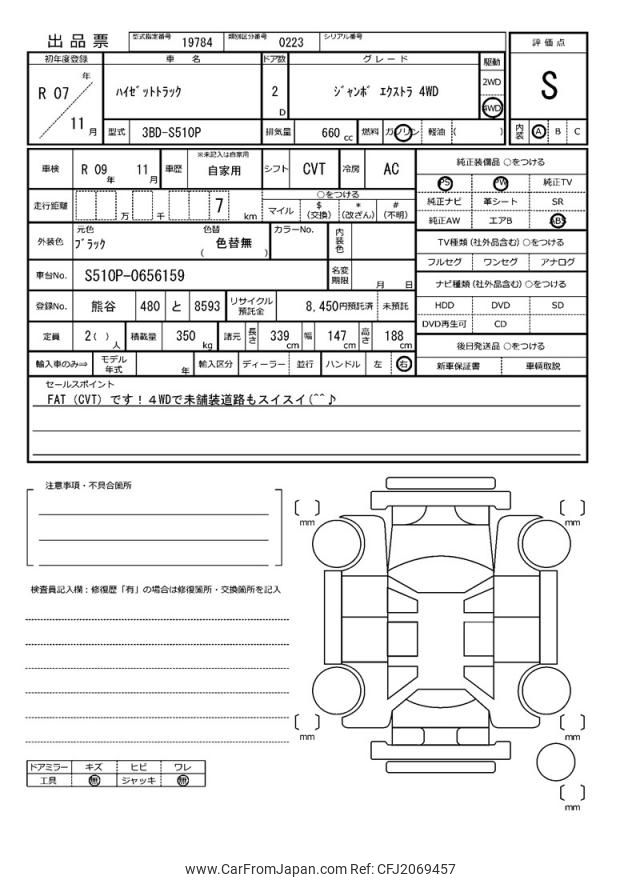 出品票 型式指定番号 19784 類別区分番号 0223 シリアル番号
初年度登録 車名 ドア数 グレード 駆動 評価点
R 07 年 11 月 ﾊｲｾﾞｯﾄﾄﾗｯｸ 2 D ｼﾞｬﾝﾎﾞ ｴｸｽﾄﾗ 4WD 2WD 4WD S
型式 3BD-S510P 排気量 660 cc 燃料 ガソリン 軽油 ( ) 内装 A B C
車検 R 09 年 11 月 車歴 ※未記入は自家用 自家用 シフト CVT 冷房 AC 純正装備品 ○をつける
PS PW 純正TV
走行距離 万 千 7 km ○をつける 純正ナビ 革シート SR
マイル $ (交換) * (改ざん) # (不明) 純正AW エアB ABS
外装色 元色 ﾌﾞﾗｯｸ 色替 ( 色替無 ) カラーNo. 内装色 TV種類 (社外品含む) ○をつける
フルセグ ワンセグ アナログ
車台No. S510P-0656159 名変期限 月 日 ナビ種類 (社外品含む) ○をつける
登録No. 熊谷 480 と 8593 リサイクル預託金 8,450円預託済 未預託 HDD DVD SD
DVD再生可 CD
定員 2( ) 人 積載量 350 kg 諸元 長さ 339 cm 幅 147 cm 高さ 188 cm 後日発送品 ○をつける
輸入車のみ⇒ モデル年式 年 輸入区分 ディーラー 並行 ハンドル 左 右 新車保証書 車輌取説
セールスポイント
FAT (CVT) です！４WDで未舗装道路もスイスイ(^^♪
注意事項・不具合箇所
mm mm
検査員記入欄：修復歴「有」の場合は修復箇所・交換箇所を記入
mm mm
ドアミラー キズ ヒビ ワレ
工具 無 ジャッキ 無
mm
www.CarFromJapan.com Ref: CFJ2069457